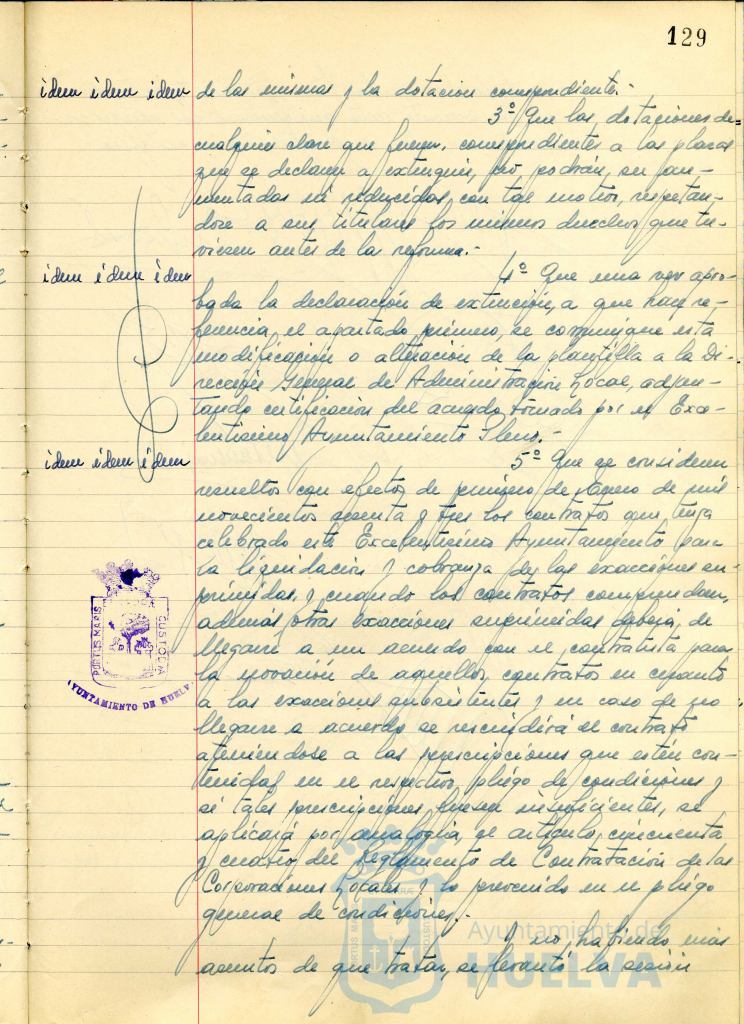 129
idem idem idem de las mismas y la dotación correspondiente.-
3º Que las dotaciones de
cualquier clase que fueren, correspondientes a las plazas
que se declaren a extinguir, no podrán, ser au-
mentadas ni reducidas con tal motivo, respetán-
dose a sus titulares los mismos derechos que tu-
viesen antes de la reforma.-
idem idem idem 4º Que una vez apro-
bada la declaración de extinción, a que hace re-
ferencia el apartado primero, se comunique esta
modificación o alteración de la plantilla a la Di-
rección General de Administración Local, adjun-
tando certificación del acuerdo tomado por el Exce-
lentísimo Ayuntamiento Pleno.-
idem idem idem 5º Que se consideren
resueltos con efectos de primero de Enero de mil
novecientos sesenta y tres los contratos que tenga
celebrado este Excelentísimo Ayuntamiento para
la liquidación y cobranza de las exacciones su-
primidas, y cuando los contratos comprendan,
además, otras exacciones suprimidas deberá de
llegarse a un acuerdo con el contratista para
la novación de aquellos contratos en cuanto
a las exacciones subsistentes y en caso de no
llegarse a acuerdo se rescindirá el contrato
ateniéndose a las prescripciones que estén con-
tenidas en el respectivo pliego de condiciones y
si tales prescripciones fuesen insuficientes, se
aplicará por analogía, el artículo cincuenta
y cuatro del Reglamento de Contratación de las
Corporaciones Locales y lo prevenido en el pliego
general de condiciones.-
Y no habiendo más
asuntos de que tratar, se levantó la sesión
PORTUS MARIS
CUSTODIA
AYUNTAMIENTO DE HUELV
Ayuntamiento de
HUELVA